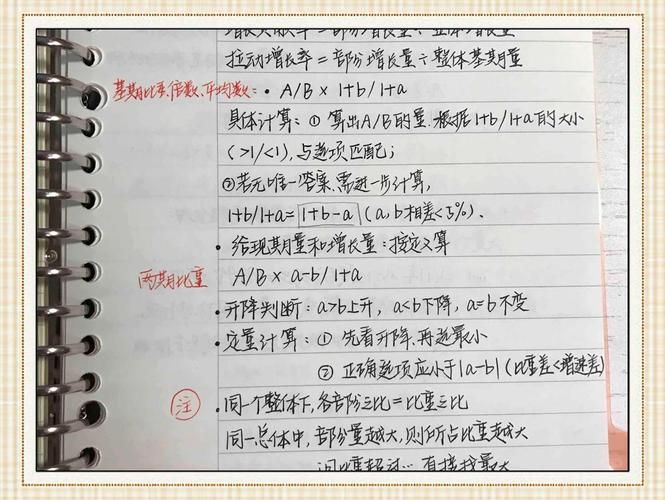 增长贡献率=部分增长量÷整体增长量
拉动增长率=部分增长量÷整体基期量
基期比重、倍数、平均数: • A/B × 1+b/1+a
具体计算: ① 算出A/B的量,根据1+b/1+a的大小
(>1/<1),与选项匹配;
②若无唯一答案,需进一步计算,
1+b/1+a≈|1+b-a|(a,b相差<5%).
• 给现期量和增长量:按定义算
两期比重 A/B × a-b/1+a
• 升降判断:a>b上升, a<b下降, a=b不变
• 定量计算: ① 先看升降,再选最小
② 正确选项应小于|a-b|(比重差<增速差)
注 • 同一个整体下,各部分之比=比重之比
同一总体中,部分量越大,则所占比重越大
问比重超过… 直接找最大